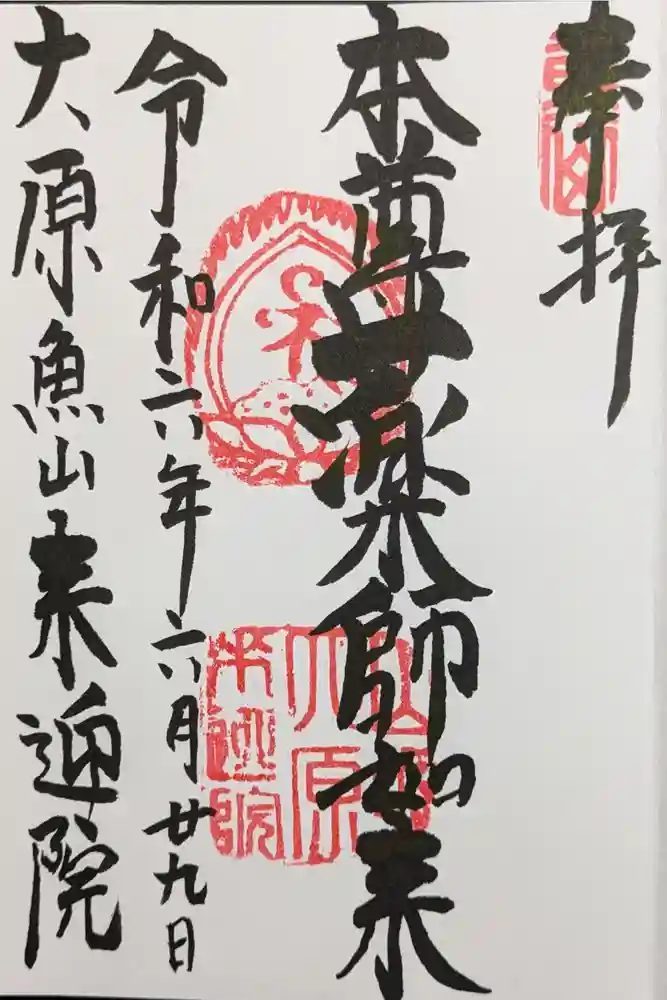 奉拝
本尊薬師如来
令和六年六月廿九日
大原魚山来迎院
大原
来迎院